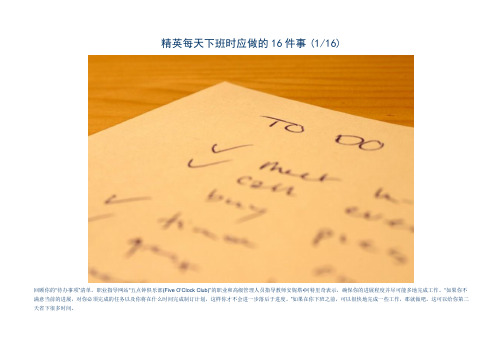 精英每天下班时应做的16件事 (1/16)
TO DO
meet
call
buy
回顾你的"待办事项"清单。职业指导网站"五点钟俱乐部(Five O'Clock Club)"的职业和高级管理人员指导教师安妮塔•阿特里奇表示，确保你的进展程度并尽可能多地完成工作。"如果你不
满意当前的进展，对你必须完成的任务以及你将在什么时间完成制订计划，这样你才不会进一步落后于进度。"如果在你下班之前，可以很快地完成一些工作，那就做吧。这可以给你第二
天省下更多时间。